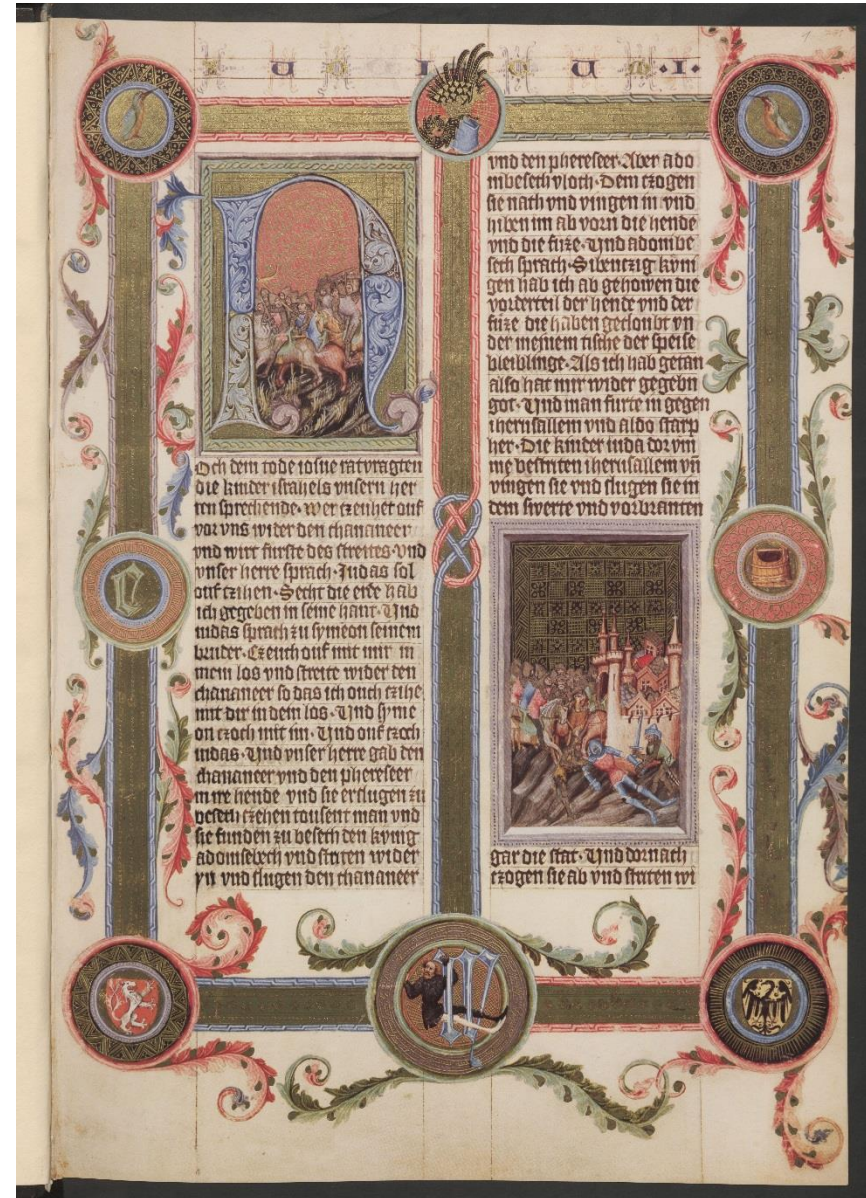 IUDICUM·I·
Och dem tode iosue ratvragten
die kinder israhels vnsern her
ren sprechende· wer czeuhet ouf
vor vns wider den chananeer
vnd wirt furste des streites· vnd
vnser herre sprach· Judas sol
ouf czihen· Secht die erde hab
ich gegeben in seine hant· Vnd
iudas sprach zu symeon seinem
bruder· Czeuch ouf mit mir in
mein los vnd streite wider den
chananeer so das ich ouch czihe
mit dir in dein los· Vnd syme
on czoch mit im· Vnd ouf czoch
iudas· Vnd vnser herre gab den
chananeer vnd den phereseer
in ire hende vnd sie erslugen zu
beseth czehen tousent man vnd
sie funden zu beseth den kunig
adonisebech vnd striten wider
yn vnd slugen den chananeer
vnd den phereseer· Aber ado
nibesech vloch· Dem czogen
sie nach vnd vingen in vnd
hiben im ab vorn die hende
vnd die fuze· Vnd adonibe
sech sprach· Sibenczig kuni
gen hab ich ab gehowen die
vorderteil der hende vnd der
fuze die haben geclonbt vn
der meinem tische der speise
bleiblinge· Als ich hab getan
also hat mir wider gegebn
got· Vnd man furte in gegen
iherusallem vnd aldo starp
her· Die kinder iuda dor vm
me bestriten iherusallem vn̄
vingen sie vnd slugen sie in
dem swerte vnd vorbranten
gar die stat· Vnd dornach
czogen sie ab vnd striten wi